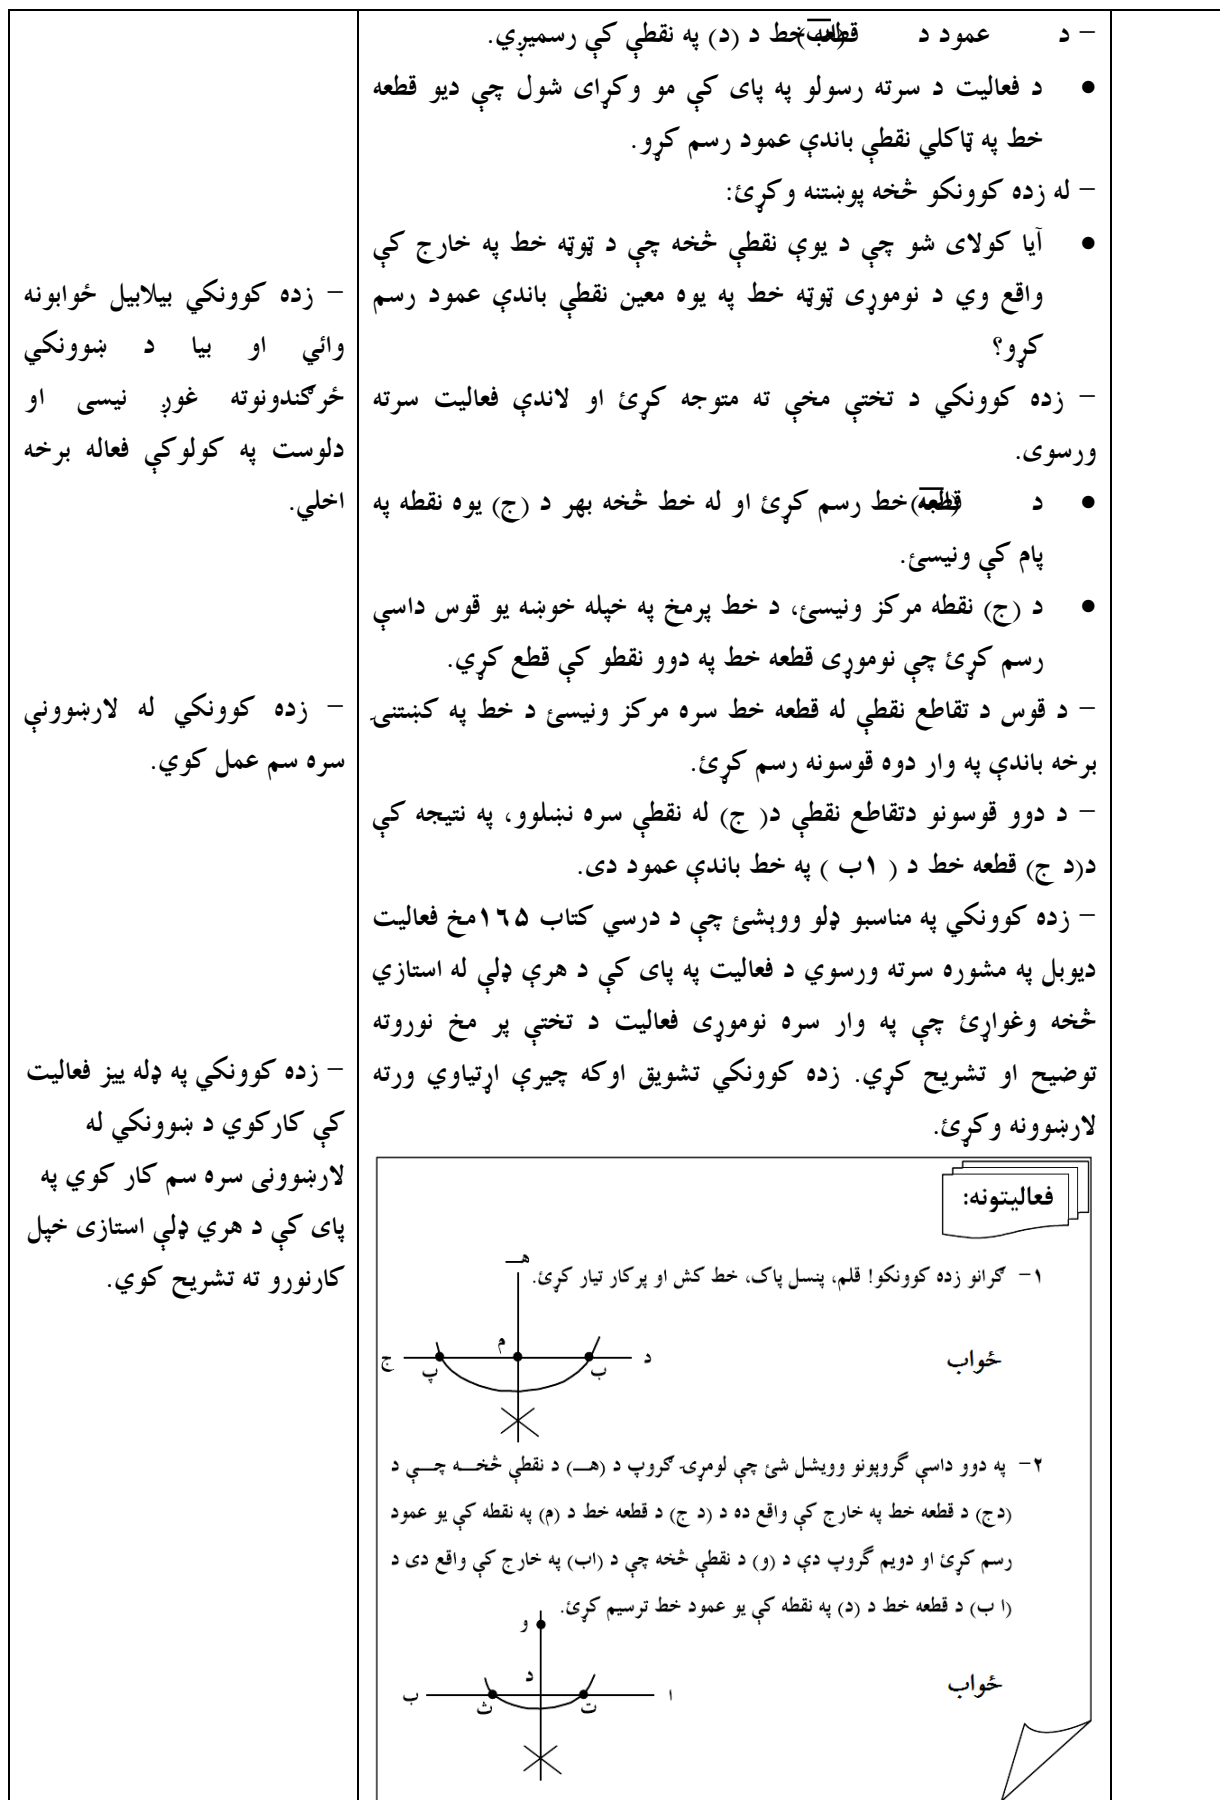 – د عمود د قطعه خط د (د) په نقطې کې رسمیږي.
● د فعالیت د سرته رسولو په پای کې مو وکړای شول چې دیو قطعه
خط په ټاکلي نقطې باندې عمود رسم کړو.
– له زده کوونکو څخه پوښتنه وکړئ:
● آیا کولای شو چې د یوې نقطې څخه چې د ټوټه خط په خارج کې
واقع وي د نوموړی ټوټه خط په یوه معین نقطې باندې عمود رسم
کړو؟
– زده کوونکي د تختې مخې ته متوجه کړئ او لاندې فعالیت سرته
ورسوی.
● د قطعه خط رسم کړئ او له خط څخه بهر د (ج) یوه نقطه په
پام کې ونیسئ.
● د (ج) نقطه مرکز ونیسئ، د خط پرمخ په خپله خوښه یو قوس داسې
رسم کړئ چې نوموړی قطعه خط په دوو نقطو کې قطع کړي.
– د قوس د تقاطع نقطې له قطعه خط سره مرکز ونیسئ د خط په کښتنۍ
برخه باندې په وار دوه قوسونه رسم کړئ.
– د دوو قوسونو دتقاطع نقطې د( ج) له نقطې سره نښلوو، په نتیجه کې
د(د ج) قطعه خط د ( ۱ب ) په خط باندې عمود دی.
– زده کوونکي په مناسبو ډلو ووېشئ چې د درسي کتاب ۱٦۵مخ فعالیت
دیوبل په مشوره سرته ورسوي د فعالیت په پای کې د هرې ډلې له استازي
څخه وغواړئ چې په وار سره نوموړی فعالیت د تختې پر مخ نوروته
توضیح او تشریح کړي. زده کوونکي تشویق اوکه چیرې اړتیاوي ورته
لارښوونه وکړئ.
فعالیتونه:
۱– ګرانو زده کوونکو! قلم، پنسل پاک، خط کش او پرکار تیار کړئ.
هـ
م
ج
د
پ
ب
ځواب
۲– په دوو داسې گروپونو وویشل شئ چې لومړۍ ګروپ د (هــ) د نقطې څخــه چــې د
(دج) د قطعه خط په خارج کې واقع ده د (د ج) د قطعه خط د (م) په نقطه کې یو عمود
رسم کړئ او دویم گروپ دې د (و) د نقطې څخه چې د (اب) په خارج کې واقع دی د
(ا ب) د قطعه خط د (د) په نقطه کې یو عمود خط ترسیم کړئ.
و
د
ب
ا
ث
ت
ځواب
– زده کوونکي بیلابیل ځوابونه
وائي او بیا د ښوونکي
څرګندونوته غوږ نیسی او
دلوست په کولوکې فعاله برخه
اخلي.
– زده کوونکي له لارښوونې
سره سم عمل کوي.
– زده کوونکي په ډله ییز فعالیت
کې کارکوي د ښوونکي له
لارښوونی سره سم کار کوي په
پای کې د هرې ډلې استازی خپل
کارنورو ته تشریح کوي.